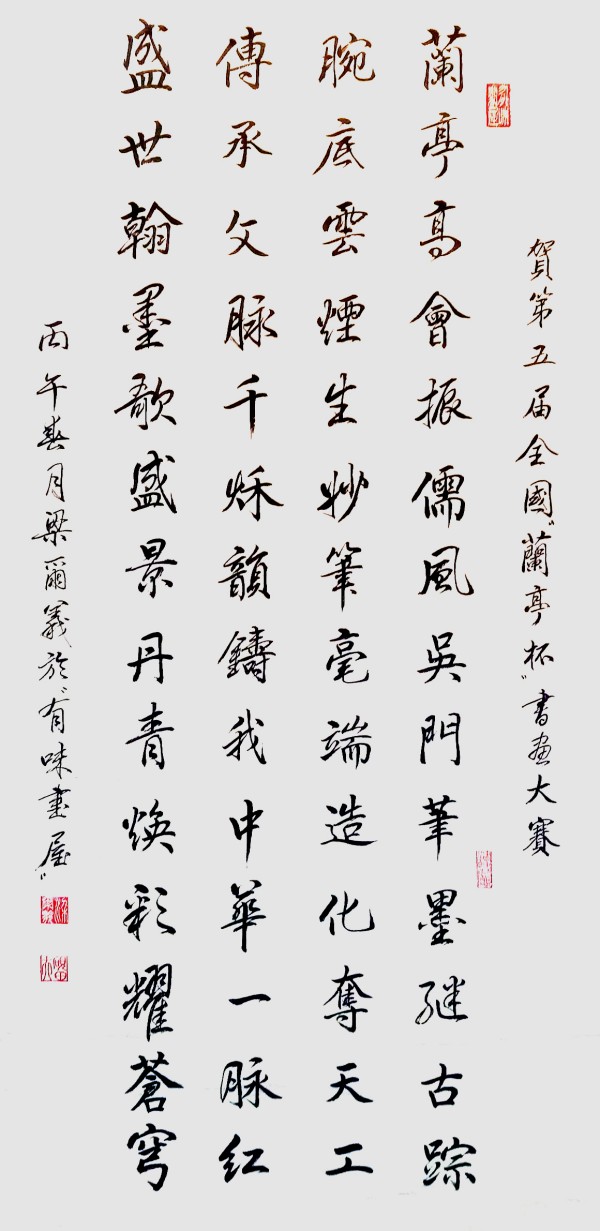 賀第五届全國“蘭亭杯”書畫大賽
蘭亭高會振儒風吳門筆墨继古踪
腕底雲煙生妙筆毫端造化奪天工
傳承文脉千秌韻鑄我中華一脉红
盛世翰墨歌盛景丹青焕彩耀蒼穹
丙午春月梁爾義於“有味畫屋”